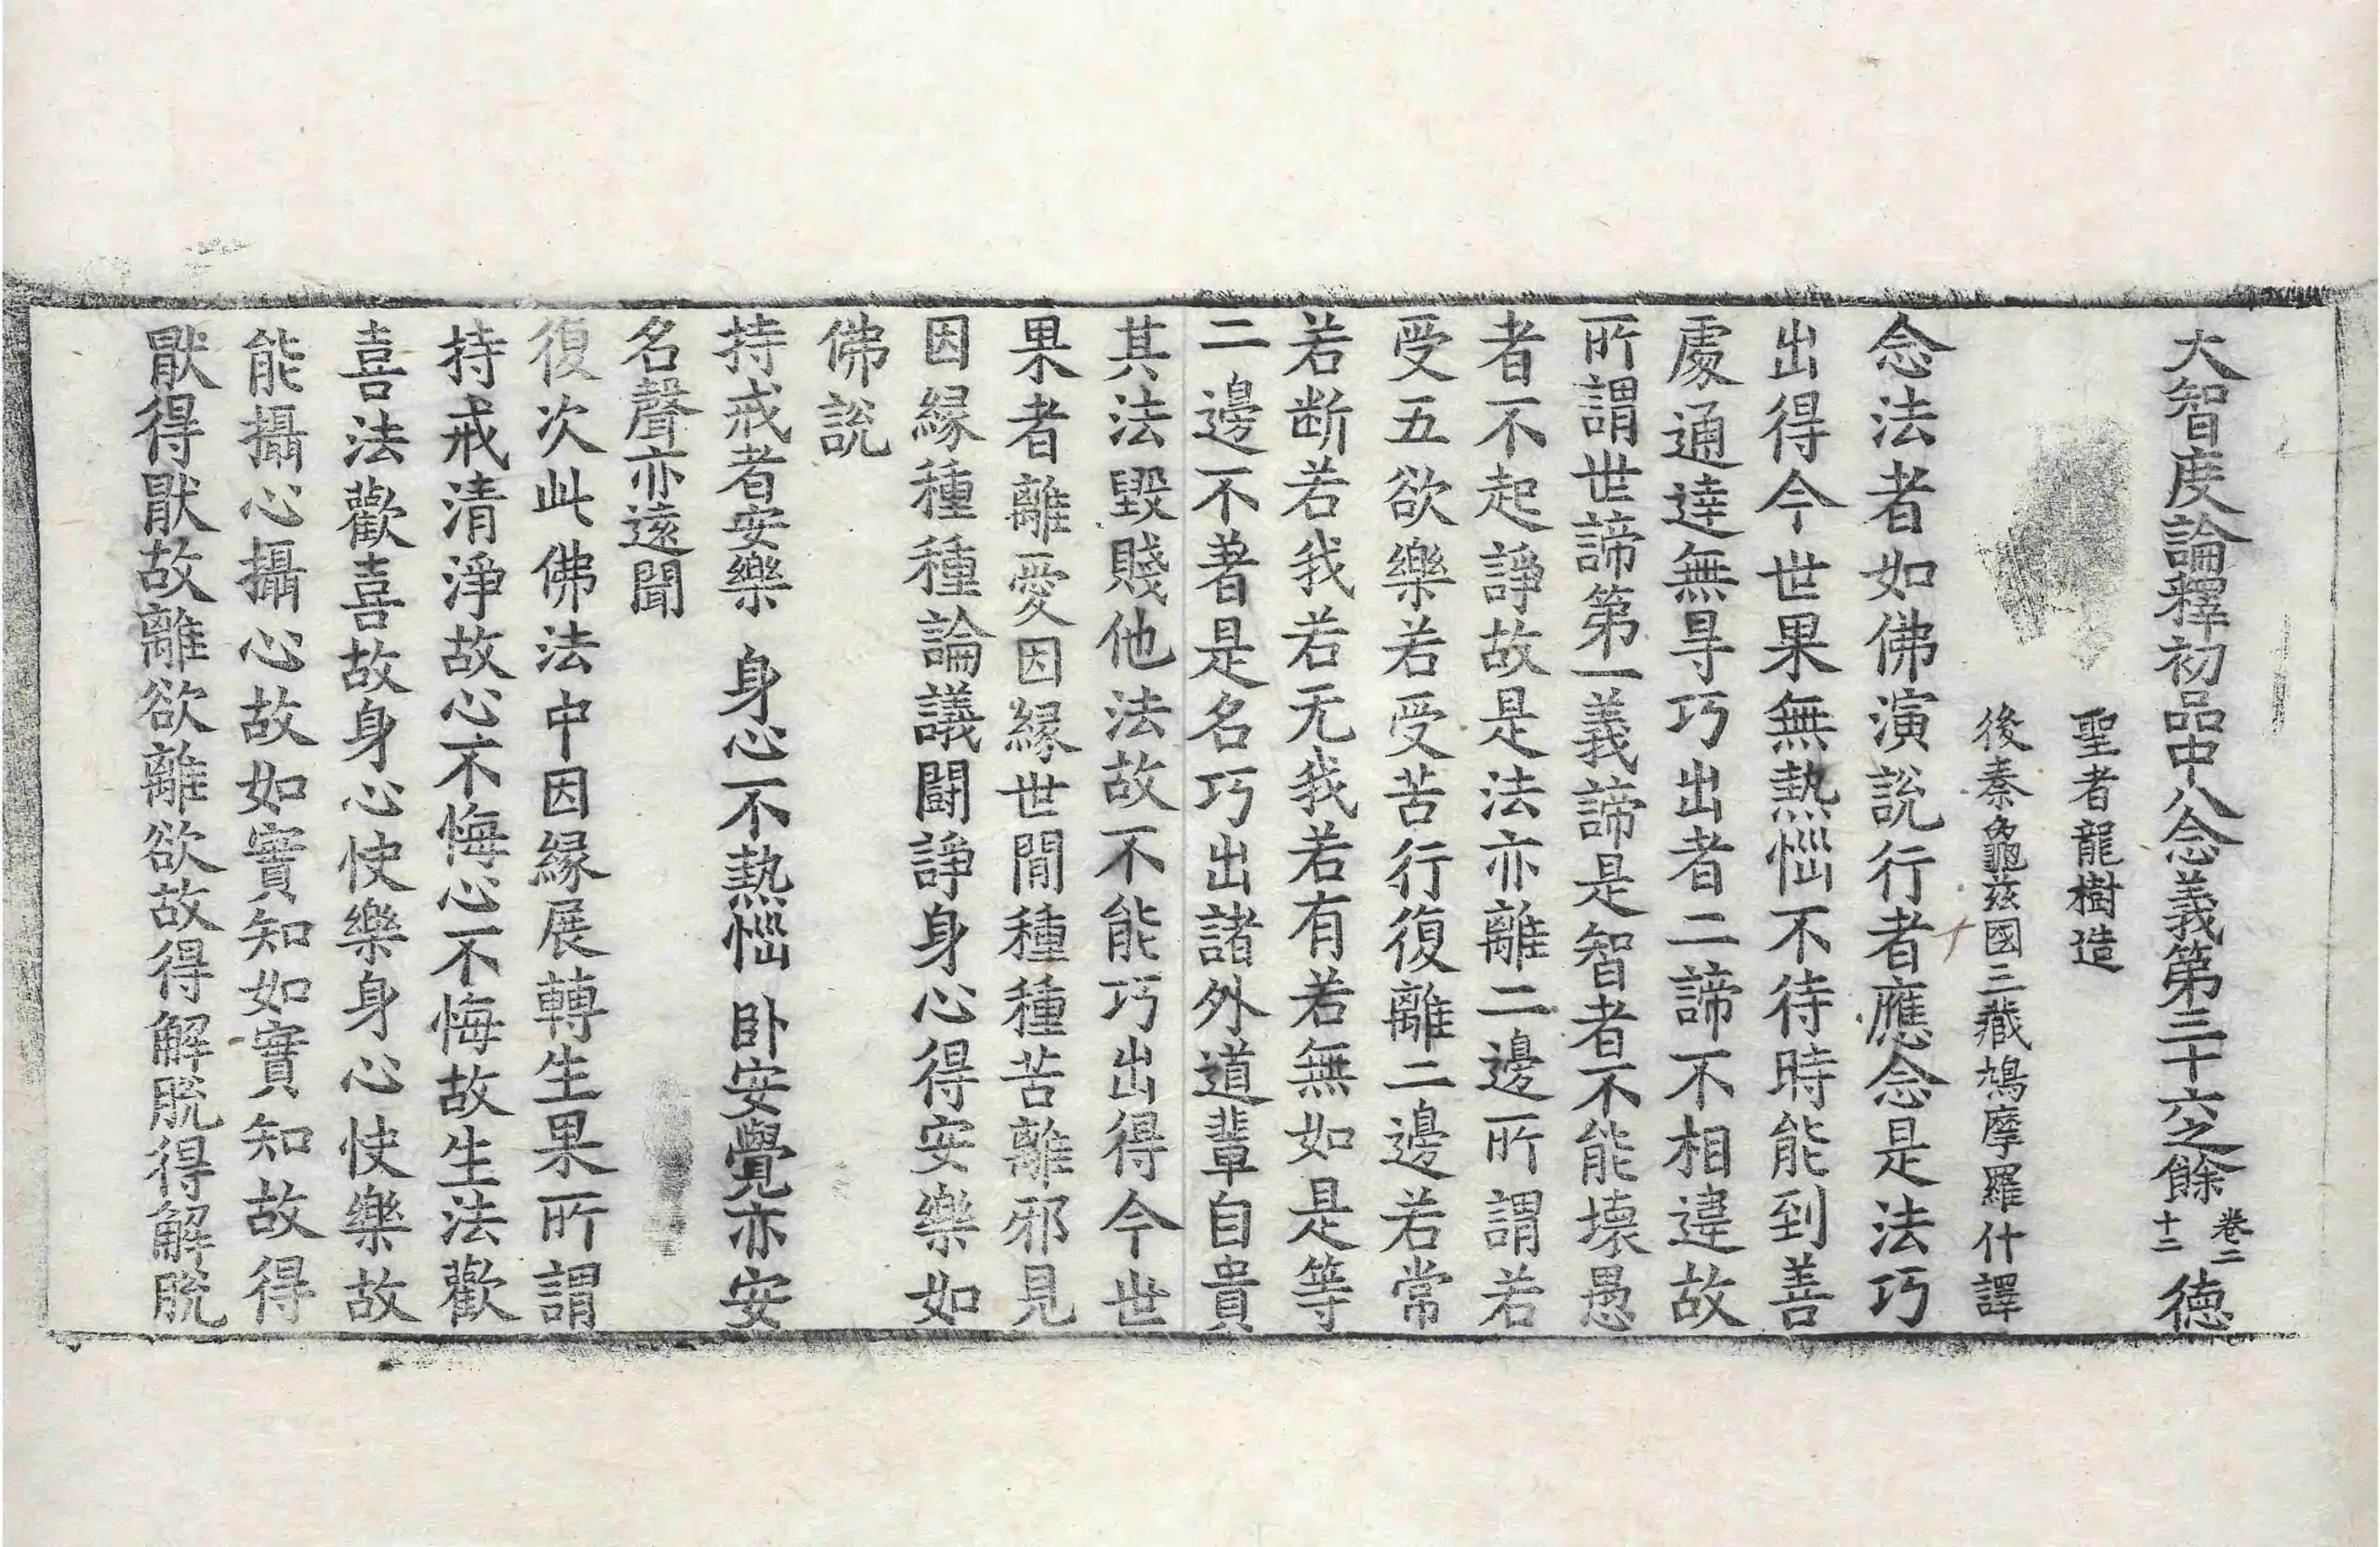 大智度論釋初品中八念義第三十六之餘 卷二十二 德
聖者龍樹造
後秦龜茲國三藏鳩摩羅什譯
念法者如佛演說行者應念是法巧
出得今世果無熱惱不待時能到善
處通達無㝵巧出者二諦不相違故
所謂世諦第一義諦是智者不能壞愚
者不起諍故是法亦離二邊所謂若
受五欲樂若受苦行復離二邊若常
若断若我若无我若有若無如是等
二邊不著是名巧出諸外道輩自貴
其法毀賤他法故不能巧出得今世
果者離愛因緣世閒種種苦離邪見
因緣種種論議闘諍身心得安樂如
佛說
持戒者安樂 身心不熱惱 卧安覺亦安
名聲亦遠聞
復次此佛法中因緣展轉生果所謂
持戒清淨故心不悔心不悔故生法歡
喜法歡喜故身心快樂身心快樂故
能攝心攝心故如實知如實知故得
猒得猒故離欲離欲故得解脫得解脫